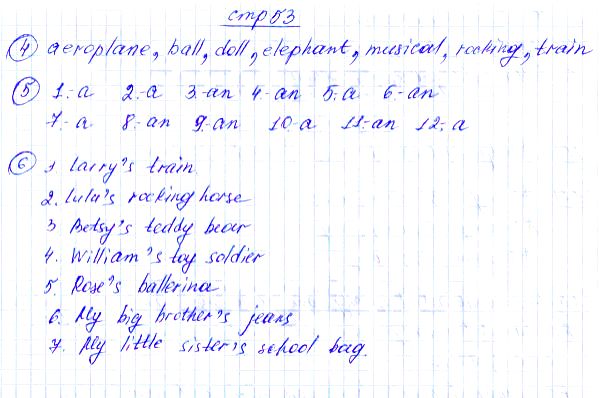 стр 53
4 aeroplane, ball, doll, elephant, musical, rocking, train
5 1.-a 2.-a 3.-an 4.-an 5.-a 6.-an
7.-a 8.-an 9.-an 10.-a 11.-an 12.-a
6 1. Larry's train
2. Lulu's rocking horse
3 Betsy's teddy bear
4. William's toy soldier
5. Rose's ballerina
6. My big brother's jeans
7. My little sister's school bag.